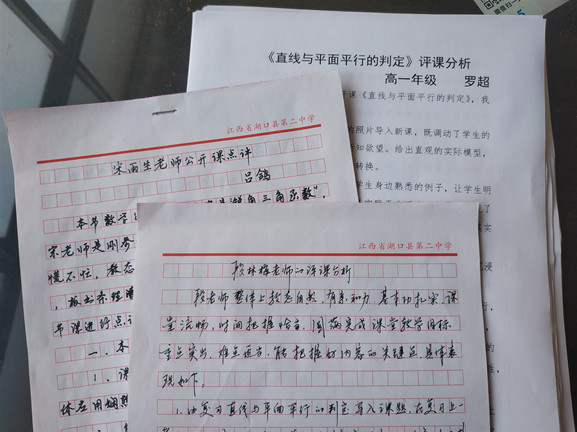 《直线与平面平行的判定》评课分析
高一年级 罗超
课《直线与平面平行的判定》，我
的照片导入新课，既调动了学生的
知欲望。给出直观的实际模型，
转换。
学生身边熟悉的例子，让学生明
江西省湖口县第二中学
宋雨生老师公开课点评
吕鸽
本节数学
角三角函数”，
宋老师是刚参
慌不忙，教态
节课进行点
一．本
1．课
体应用娴熟
江西省湖口县第二中学
段林梅老师的评课分析
段老师整体上教态自然，有亲和力，基本功扎实，课
堂流畅，时间把握恰当，圆满完成课堂教学目标
重点突出，难点适当，能把握好内容的关键点，具体表
现如下。
1．由复习直线与平面平行的判定导入课题，在复习上一